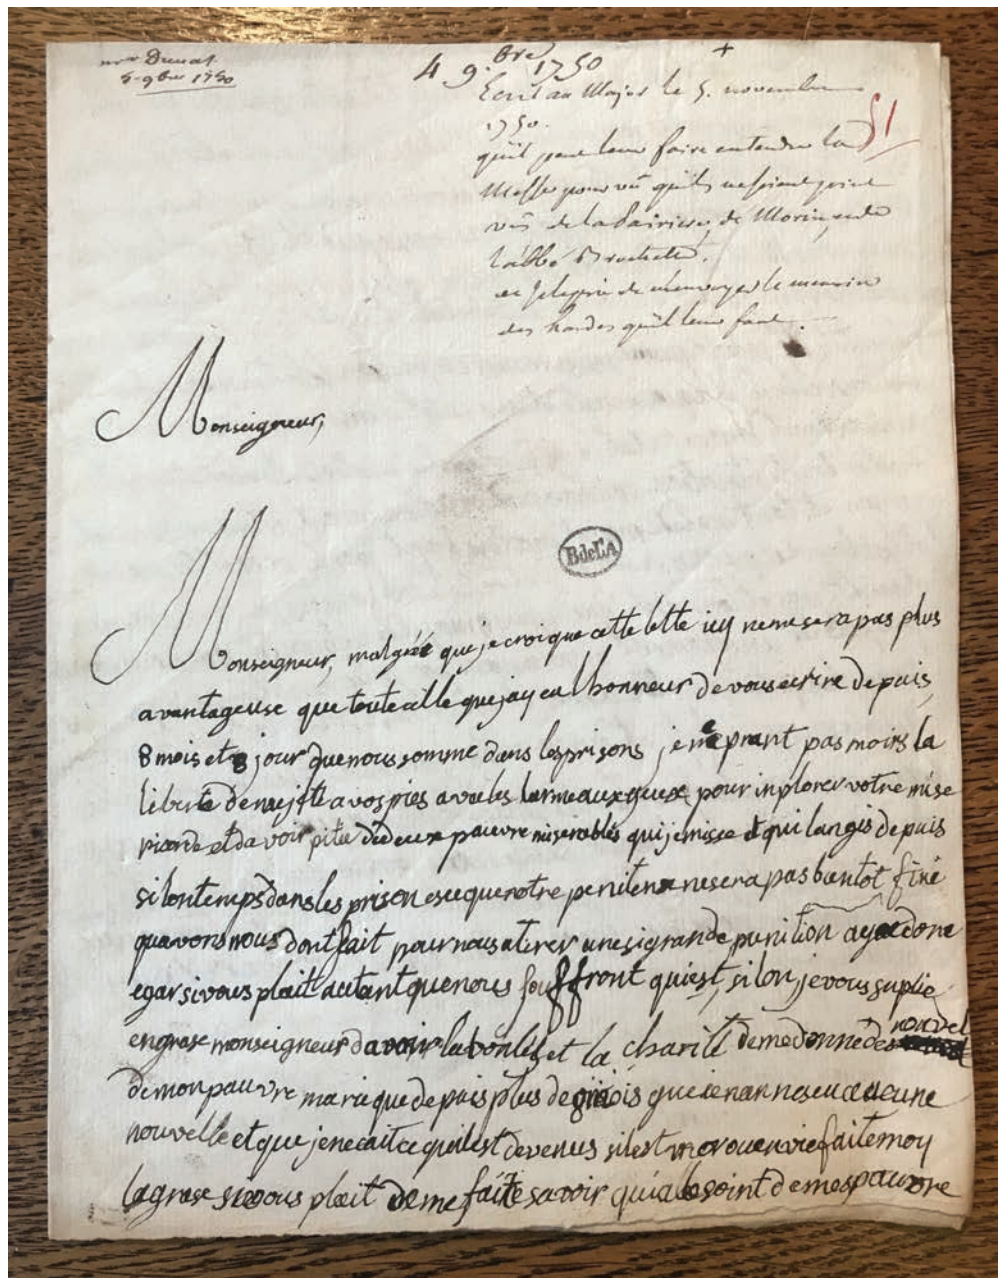 mr Duval
5 9bre 1750
4 9.bre 1750
+
Ecrit au Major le 5. novembre
1750.
51
qu'il peut leur faire entendre la
Messe pourvû qu'ils ne soient point
vûs de la Sairiere, de Morin, ni de
l'abbé Brochette.
et je le prie de m'envoyer le memoire
des hardes qu'il leur faut.
Monseigneur,
BdelA
Monseigneur, malgréé que je croi que cette lette icy ne me sera pas plus
avantageuse que toute celle que jay eu lhonneur de vous ecrire depuis
8 mois et 8 jour que nous somme dans les prisons je ne prant pas moirs la
liberté de me jfté a vos pies avec les larme aux yeux pour inplorer votre mise
ricorde et da voir pitié de deux pauvre miserables qui jemisse et qui langis depuis
si lontemps dans les prison esce que notre penitence ne sera pas biantot finé
quavons nous dont fait pour nous atirer une si grande punition ayez donc
egar si vous plait autant que nous souffront quiest si lon, je vous suplie
en grase monseigneur d avoir la bontés et la charité de me donné des nouvel
de mon pauvre mari que depuis plus de mois que je nan nes eu aucune
nouvelle et que je ne cait ce quil est devenus sil est mor ou en vie faite moy
la grase si vous plait de me faite savoir qui a le soint de mes pauvre